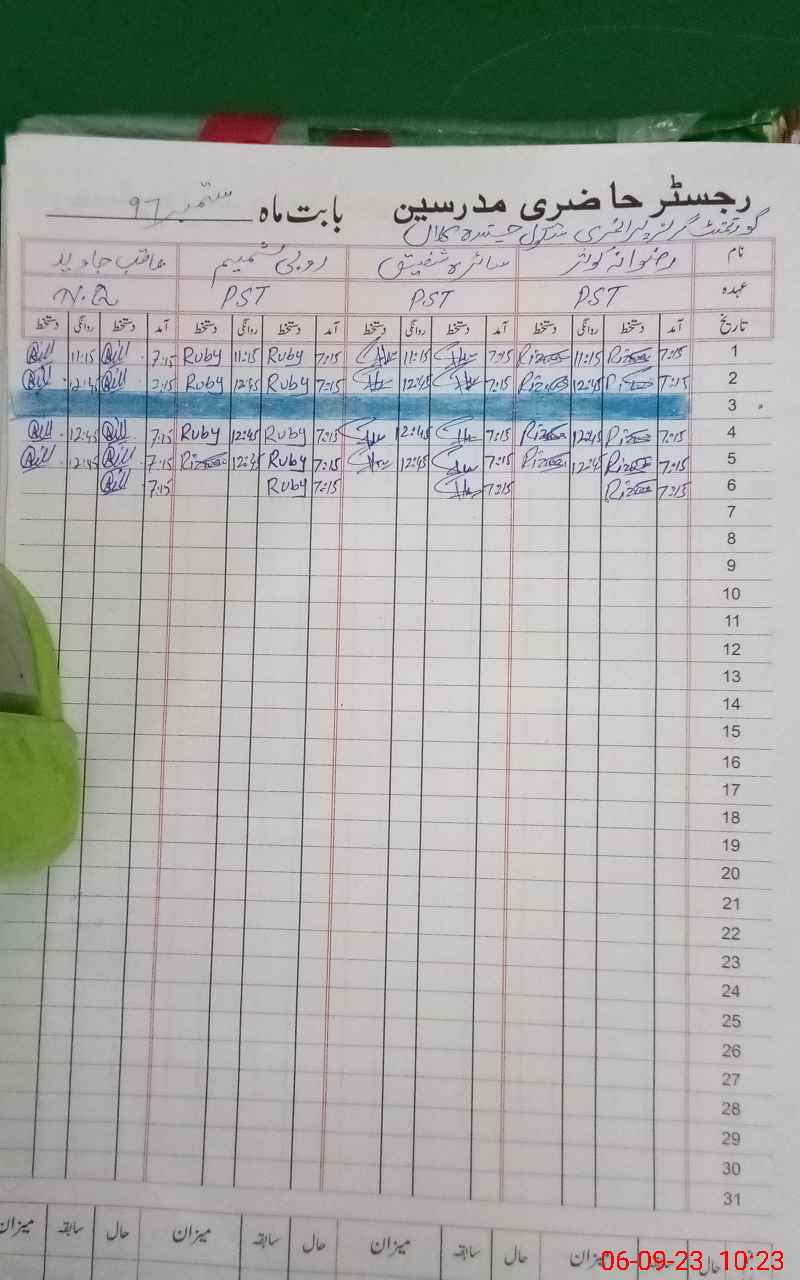 رجسٹر حاضری مدرسین بابت ماہ ستمبر
گورنمنٹ گرلز پرائمری سکول
نام رضوانہ کوثر سائرہ شفیق روبی شمیم عاقب جاوید
عہدہ PST PST PST N.Q
تاریخ آمد دستخط روانگی دستخط آمد دستخط روانگی دستخط آمد دستخط روانگی دستخط آمد دستخط روانگی دستخط
1 7:15 11:15 7:15 11:15 7:15 Ruby 11:15 Ruby 7:15 11:15
2 7:15 12:45 7:15 12:45 7:15 Ruby 12:45 Ruby 7:15 12:45
3
4 7:15 12:45 7:15 12:45 7:15 Ruby 12:45 Ruby 7:15 12:45
5 7:15 12:45 7:15 12:45 7:15 Ruby 12:45 7:15 12:45
6 7:15 7:15 7:15 Ruby 7:15
7
8
9
10
11
12
13
14
15
16
17
18
19
20
21
22
23
24
25
26
27
28
29
30
31
حال میزان سابقہ حال میزان سابقہ حال میزان سابقہ حال سابقہ میزان
06-09-23 10:23